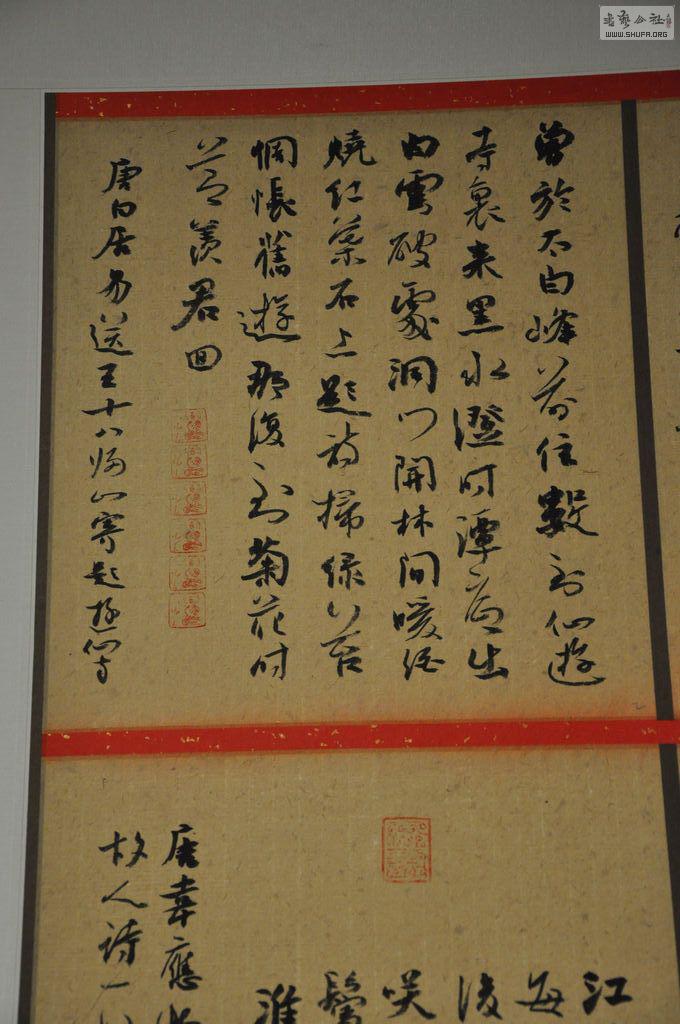 书艺公社
WWW.SHUFA.ORG
曾於太白峰前住數到仙遊
寺裏来黑水澄时潭底出
白雲破處洞门開林间暖酒
燒紅葉石上題詩掃緑苔
惆悵舊遊那復到菊花时
節羨君回
唐白居易送王十八歸山寄題遊仙寺
江
每
後
咲
鬢
淮
唐韋應物
故人詩一